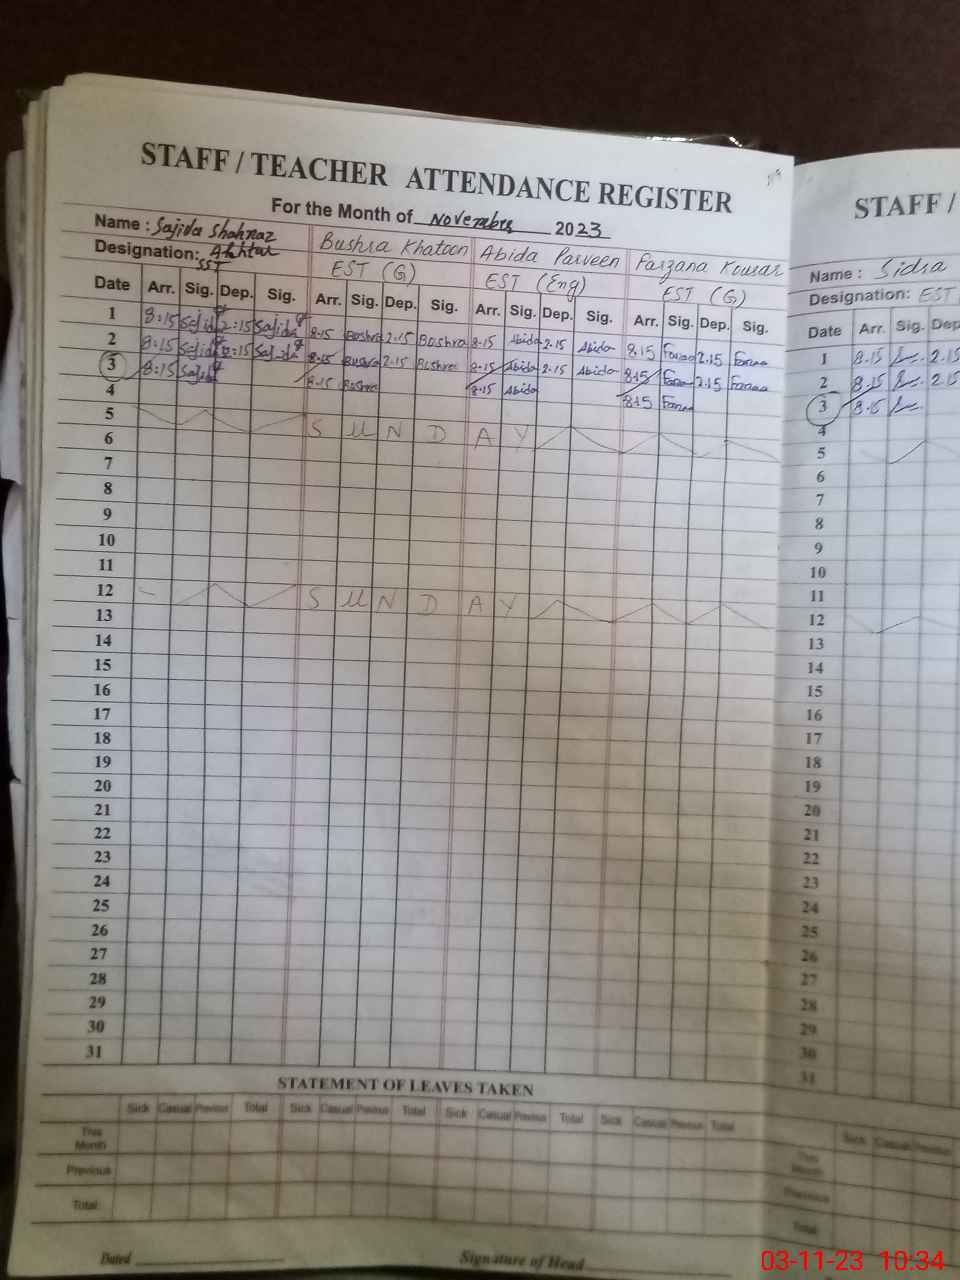 STAFF / TEACHER ATTENDANCE REGISTER
For the Month of November 2023
Name : Sajida Shahnaz Akhtar Bushra Khatoon Abida Parveen Farzana Kousar
Designation: SST EST (G) EST (Eng) EST (G)
Date Arr. Sig. Dep. Sig. Arr. Sig. Dep. Sig. Arr. Sig. Dep. Sig. Arr. Sig. Dep. Sig.
1 8:15 Sajida 2:15 Sajida 8.15 Bushra 2.15 Bushra 8.15 Abida 2.15 Abida 8.15 2.15
2 8:15 Sajida 2:15 Sajida 8.15 Bushra 2.15 Bushra 8.15 Abida 2.15 Abida 8.15 2.15
3 8:15 Sajida 8.15 Bushra 8.15 Abida 8.15
4
5 SUNDAY
6
7
8
9
10
11
12 SUNDAY
13
14
15
16
17
18
19
20
21
22
23
24
25
26
27
28
29
30
31
STATEMENT OF LEAVES TAKEN
Sick Casual Previous Total Sick Casual Previous Total Sick Casual Previous Total Sick Casual Previous Total
This Month
Previous
Total
Dated
Signature of Head
STAFF /
Name : Sidra
Designation: EST
Date Arr. Sig. Dep
1 8.15 2.15
2 8.15 2.15
3 8.15
4
5
6
7
8
9
10
11
12
13
14
15
16
17
18
19
20
21
22
23
24
25
26
27
28
29
30
31
Sick Casual Previous
This Month
Previous
Total
03-11-23 10:34